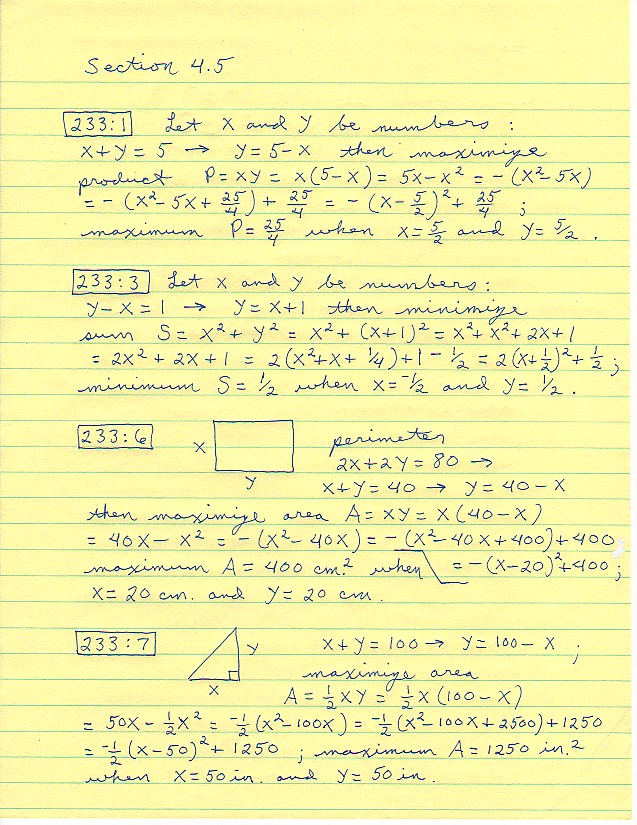 Section 4.5
233:1 Let x and y be numbers :
x+y = 5 → y = 5-x then maximize
product P = xy = x(5-x) = 5x-x² = -(x²-5x)
= -(x²-5x+25/4)+25/4 = -(x-5/2)²+25/4 ;
maximum P = 25/4 when x = 5/2 and y = 5/2 .
233:3 Let x and y be numbers :
y-x = 1 → y = x+1 then minimize
sum S = x²+y² = x²+(x+1)² = x²+x²+2x+1
= 2x²+2x+1 = 2(x²+x+1/4)+1-1/2 = 2(x+1/2)²+1/2 ;
minimum S = 1/2 when x = -1/2 and y = 1/2 .
233:6 x y perimeter
2x+2y = 80 →
x+y = 40 → y = 40-x
then maximize area A = xy = x(40-x)
= 40x-x² = -(x²-40x) = -(x²-40x+400)+400
maximum A = 400 cm.² when = -(x-20)²+400 ;
x = 20 cm. and y = 20 cm .
233:7 y x x+y = 100 → y = 100-x ;
maximize area
A = 1/2 xy = 1/2 x(100-x)
= 50x-1/2x² = -1/2(x²-100x) = -1/2(x²-100x+2500)+1250
= -1/2(x-50)²+1250 ; maximum A = 1250 in.²
when x = 50 in. and y = 50 in.